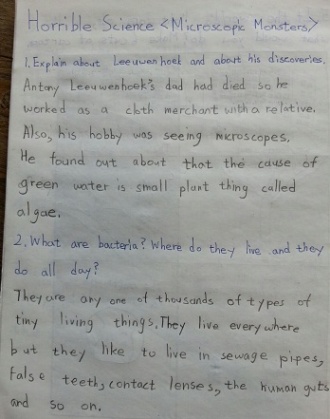 Horrible Science <Microscopic Monsters>
1. Explain about Leeuwenhoek and about his discoveries.
Antony Leeuwenhoek's dad had died so he
worked as a cloth merchant with a relative.
Also, his hobby was seeing microscopes.
He found out about that the cause of
green water is small plant thing called
algae.
2. What are bacteria? Where do they live and they
do all day?
They are any one of thousands of types of
tiny living things. They live everywhere
but they like to live in sewage pipes,
false teeth, contact lenses, the human guts
and so on.